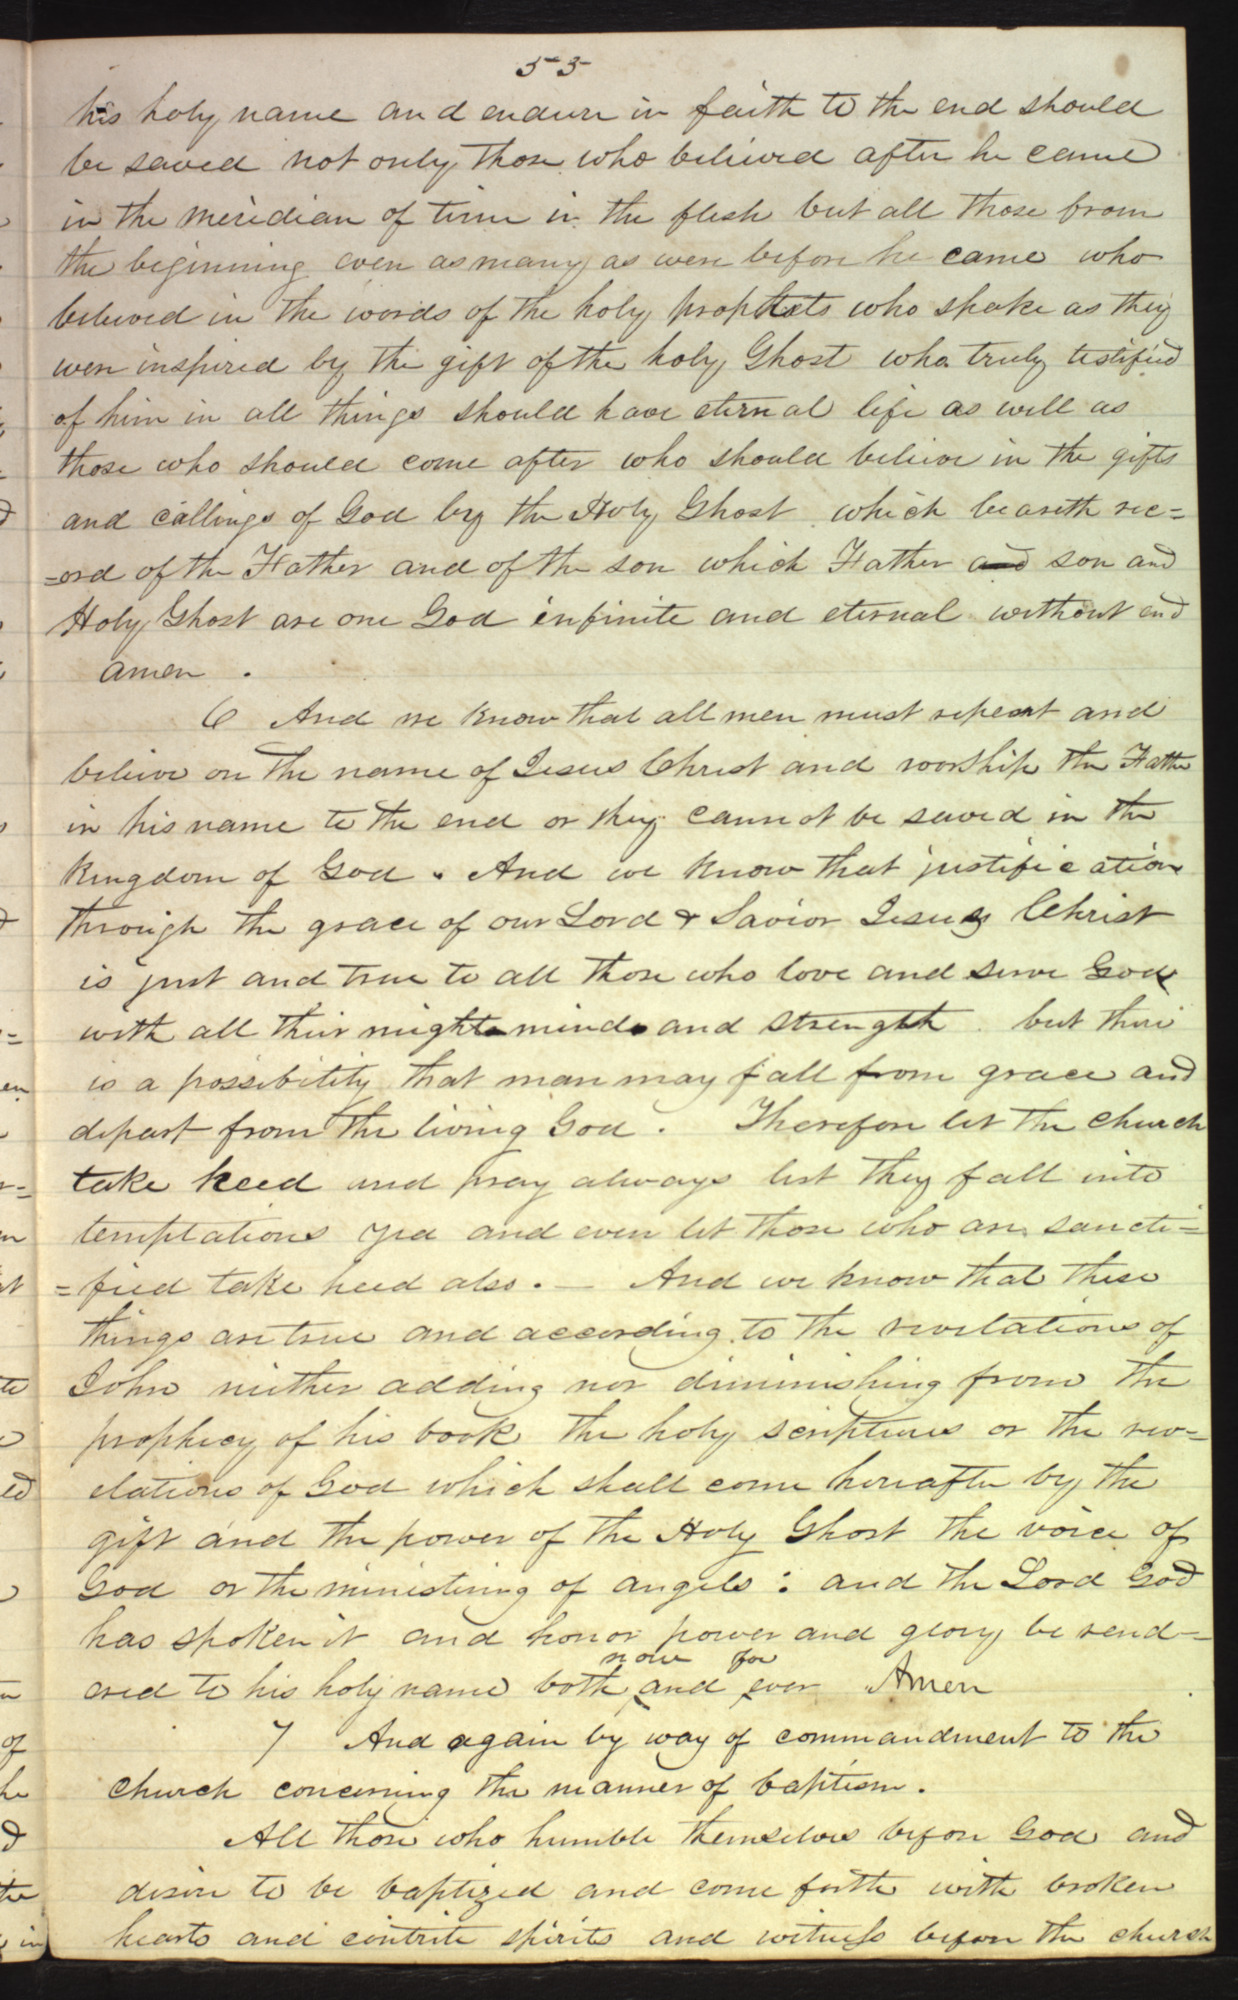 55
his holy name and endure in faith to the end should
be saved not only those who believed after he came
in the meridian of time in the flesh but all those from
the beginning even as many as were before he came who
believed in the words of the holy prophets who spake as they
were inspired by the gift of the holy Ghost who truly testified
of him in all things should have eternal life as well as
those who should come after who should believe in the gifts
and callings of God by the Holy Ghost which beareth rec=
=ord of the Father and of the son which Father and son and
Holy Ghost are one God infinite and eternal without end
amen .
6 And we know that all men must repent and
believe on the name of Jesus Christ and worship the Father
in his name to the end or they cannot be saved in the
Kingdom of God . And we know that justification
through the grace of our Lord & Savior Jesus Christ
is just and true to all those who love and serve God
with all their might mind and strength but there
is a possibility that man may fall from grace and
depart from the living God . Therefore let the church
take heed and pray always lest they fall into
temptations yea and even let those who are sancti=
=fied take heed also . — And we know that these
things are true and according to the revelations of
John neither adding nor diminishing from the
prophecy of his book the holy scriptures or the rev=
elations of God which shall come hereafter by the
gift and the power of the Holy Ghost the voice of
God or the ministering of angels : and the Lord God
has spoken it and honor power and glory be rend=
now for
ered to his holy name both and ever Amen
7 And again by way of commandment to the
church concerning the manner of baptism .
All those who humble themselves before God and
desire to be baptized and come forth with broken
hearts and contrite spirits and witness before the church